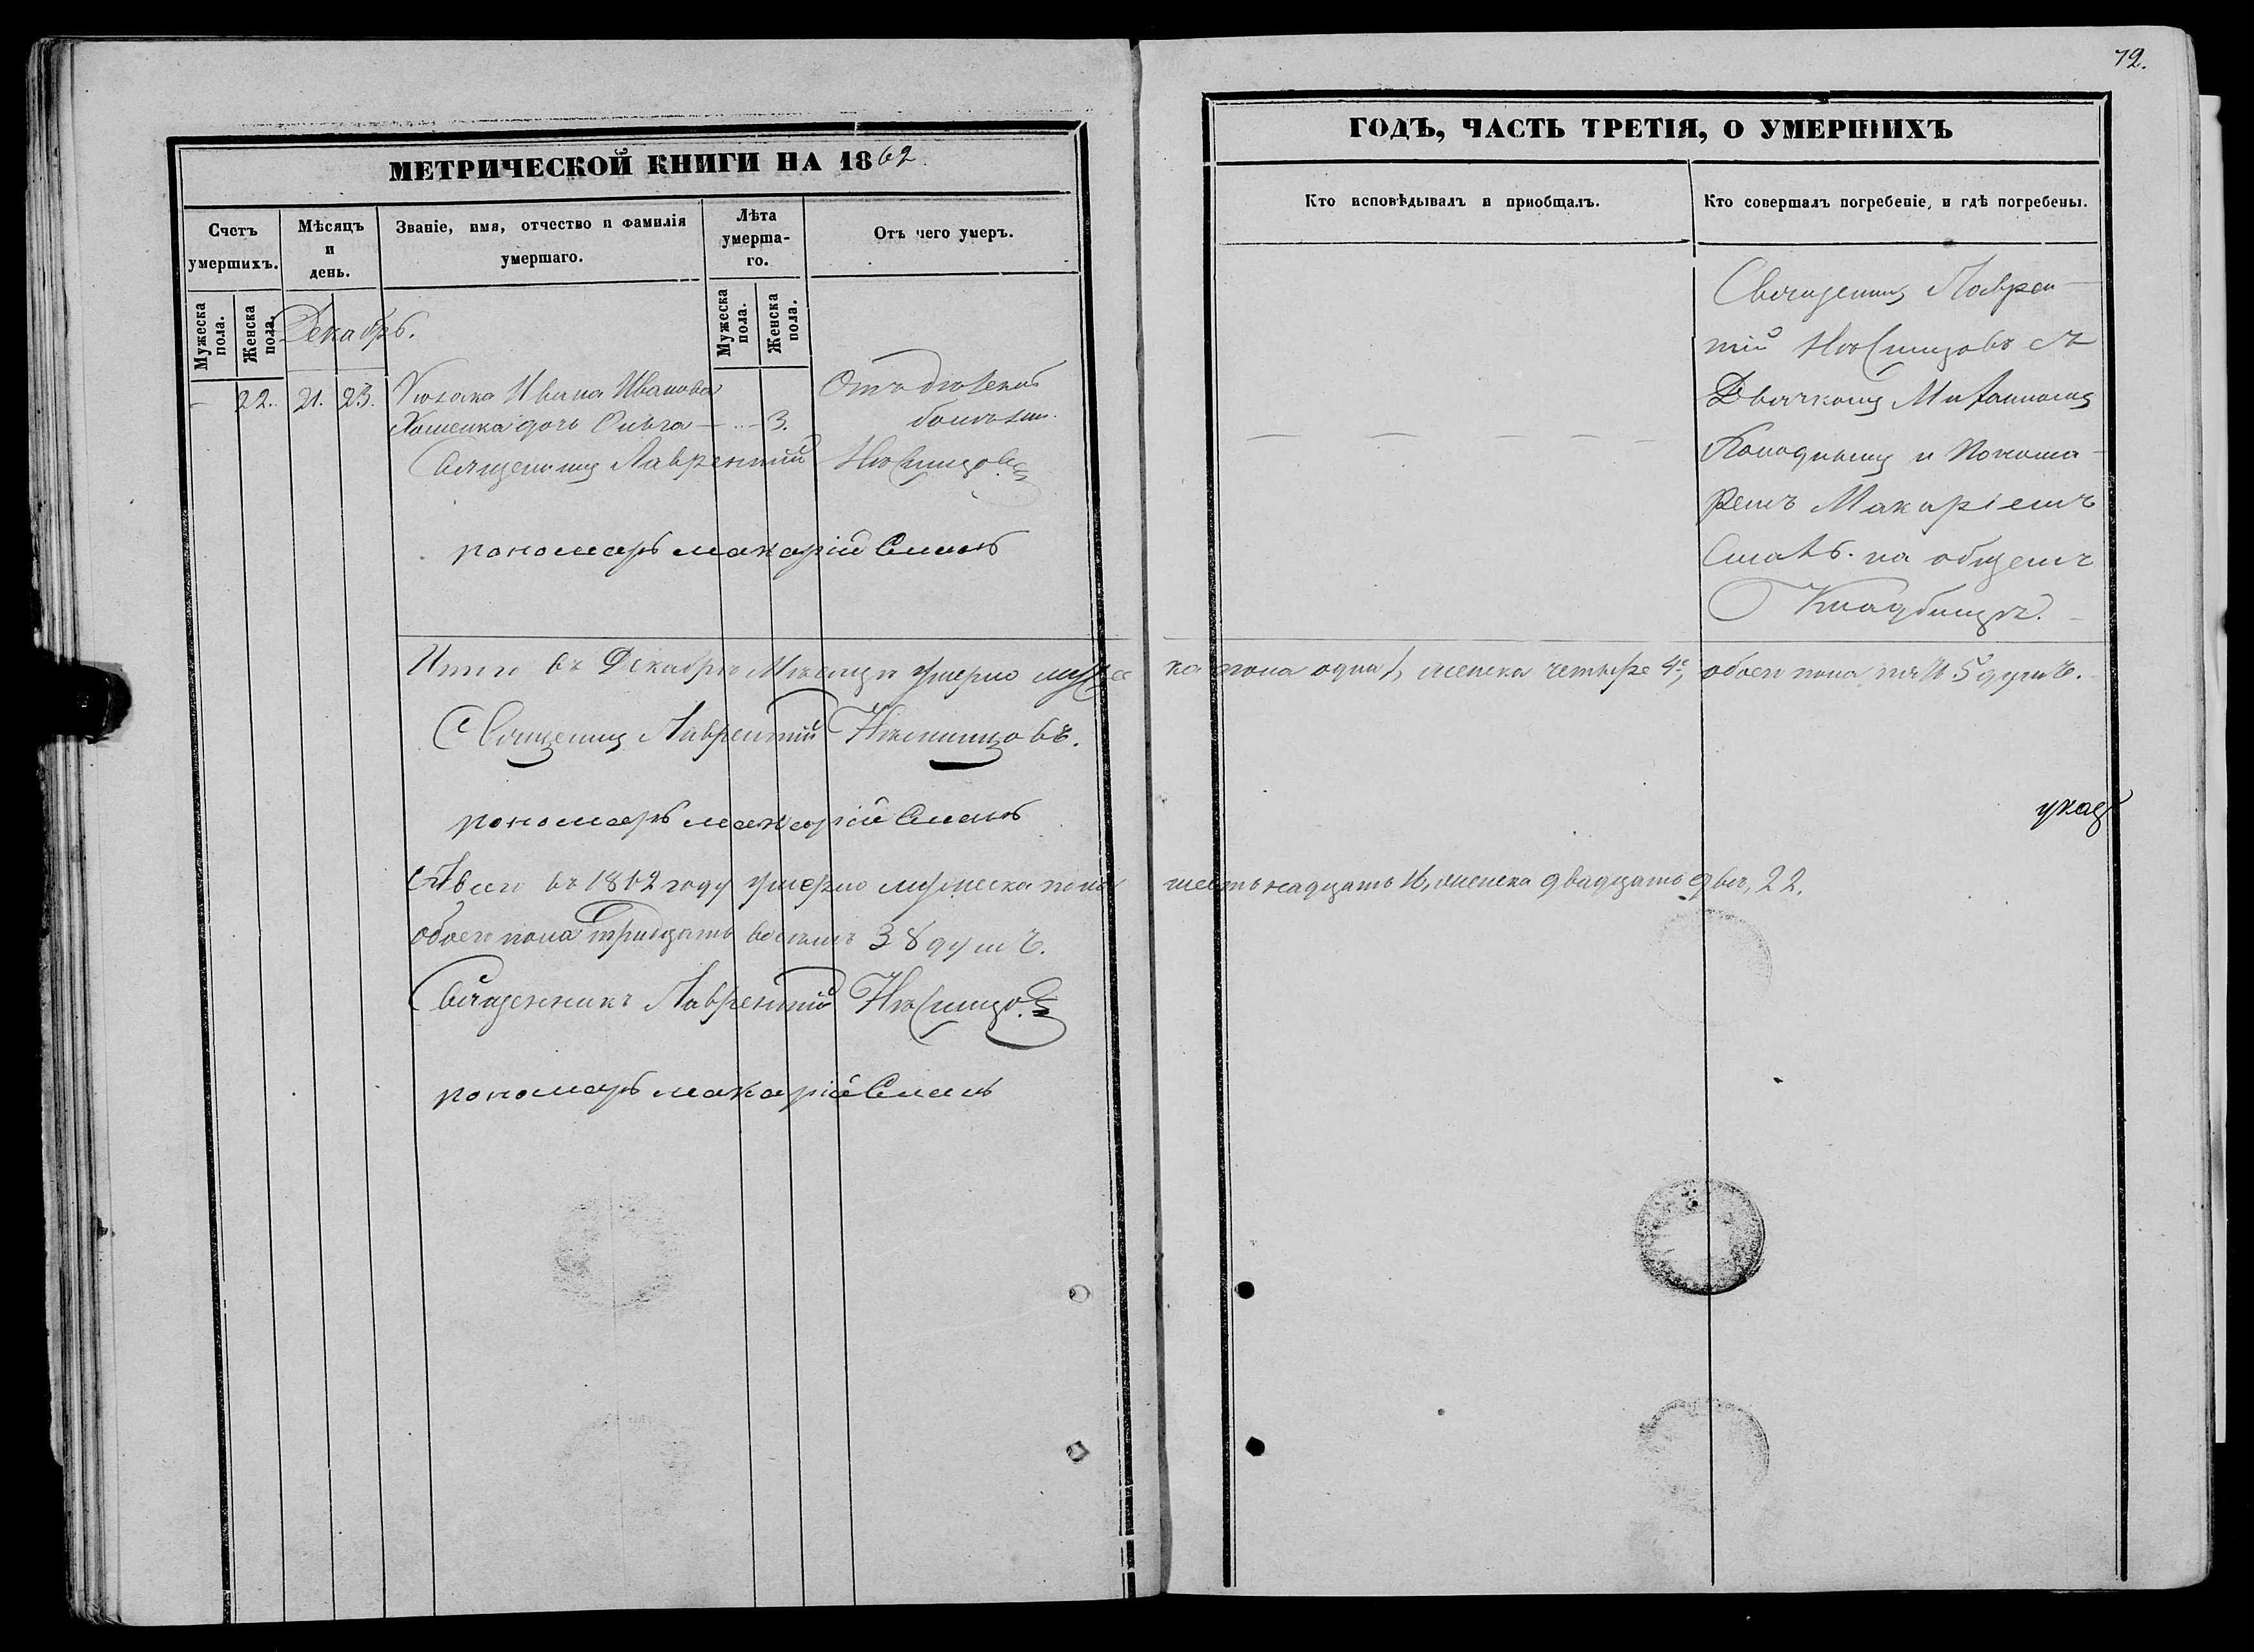 72.
МЕТРИЧЕСКОЙ КНИГИ НА 1862
Счетъ умершихъ.
Мужеска пола.
Женска пола.
Мѣсяцъ и день.
Званіе, имя, отчество и фамилія умершаго.
Лѣта умерша-го.
Мужеска пола.
Женска пола.
Отъ чего умеръ.
Декабрь.
22. 21. 23. Козака Ивана Иванова Отъ
дочь Ольга — 3. болѣзни.
Священникъ Лаврентій
пономарь макарій
Итого въ Декабрѣ Мѣсяцѣ умерло мужес
Священникъ Лаврентій
пономарь макарій
А всего въ 1862 году умерло мужеска пола
обоего пола тридцать восемь 38 душъ.
Священникъ Лаврентій
пономарь макарій
ГОДЪ, ЧАСТЬ ТРЕТІЯ, О УМЕРШИХЪ
Кто исповѣдывалъ и пріобщалъ.
Кто совершалъ погребеніе, и гдѣ погребены.
Священникъ Лаврен-
тій съ
Дьячкомъ
и Понома-
ремъ Макаріемъ
на общемъ
Кладбищѣ.
ка пола одна 1, женска четыре 4, обоего пола пять 5 душъ.
шестьнадцать 16, женска двадцать двѣ, 22.